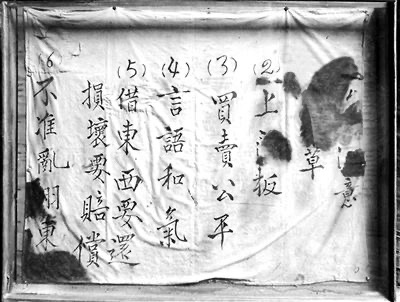 意
草
(2)上板
(3)買賣公平
(4)言語和氣
(5)借東西要還
損壞要賠償
(6)不准亂用東